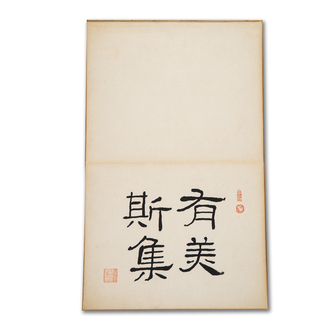 有美
斯集